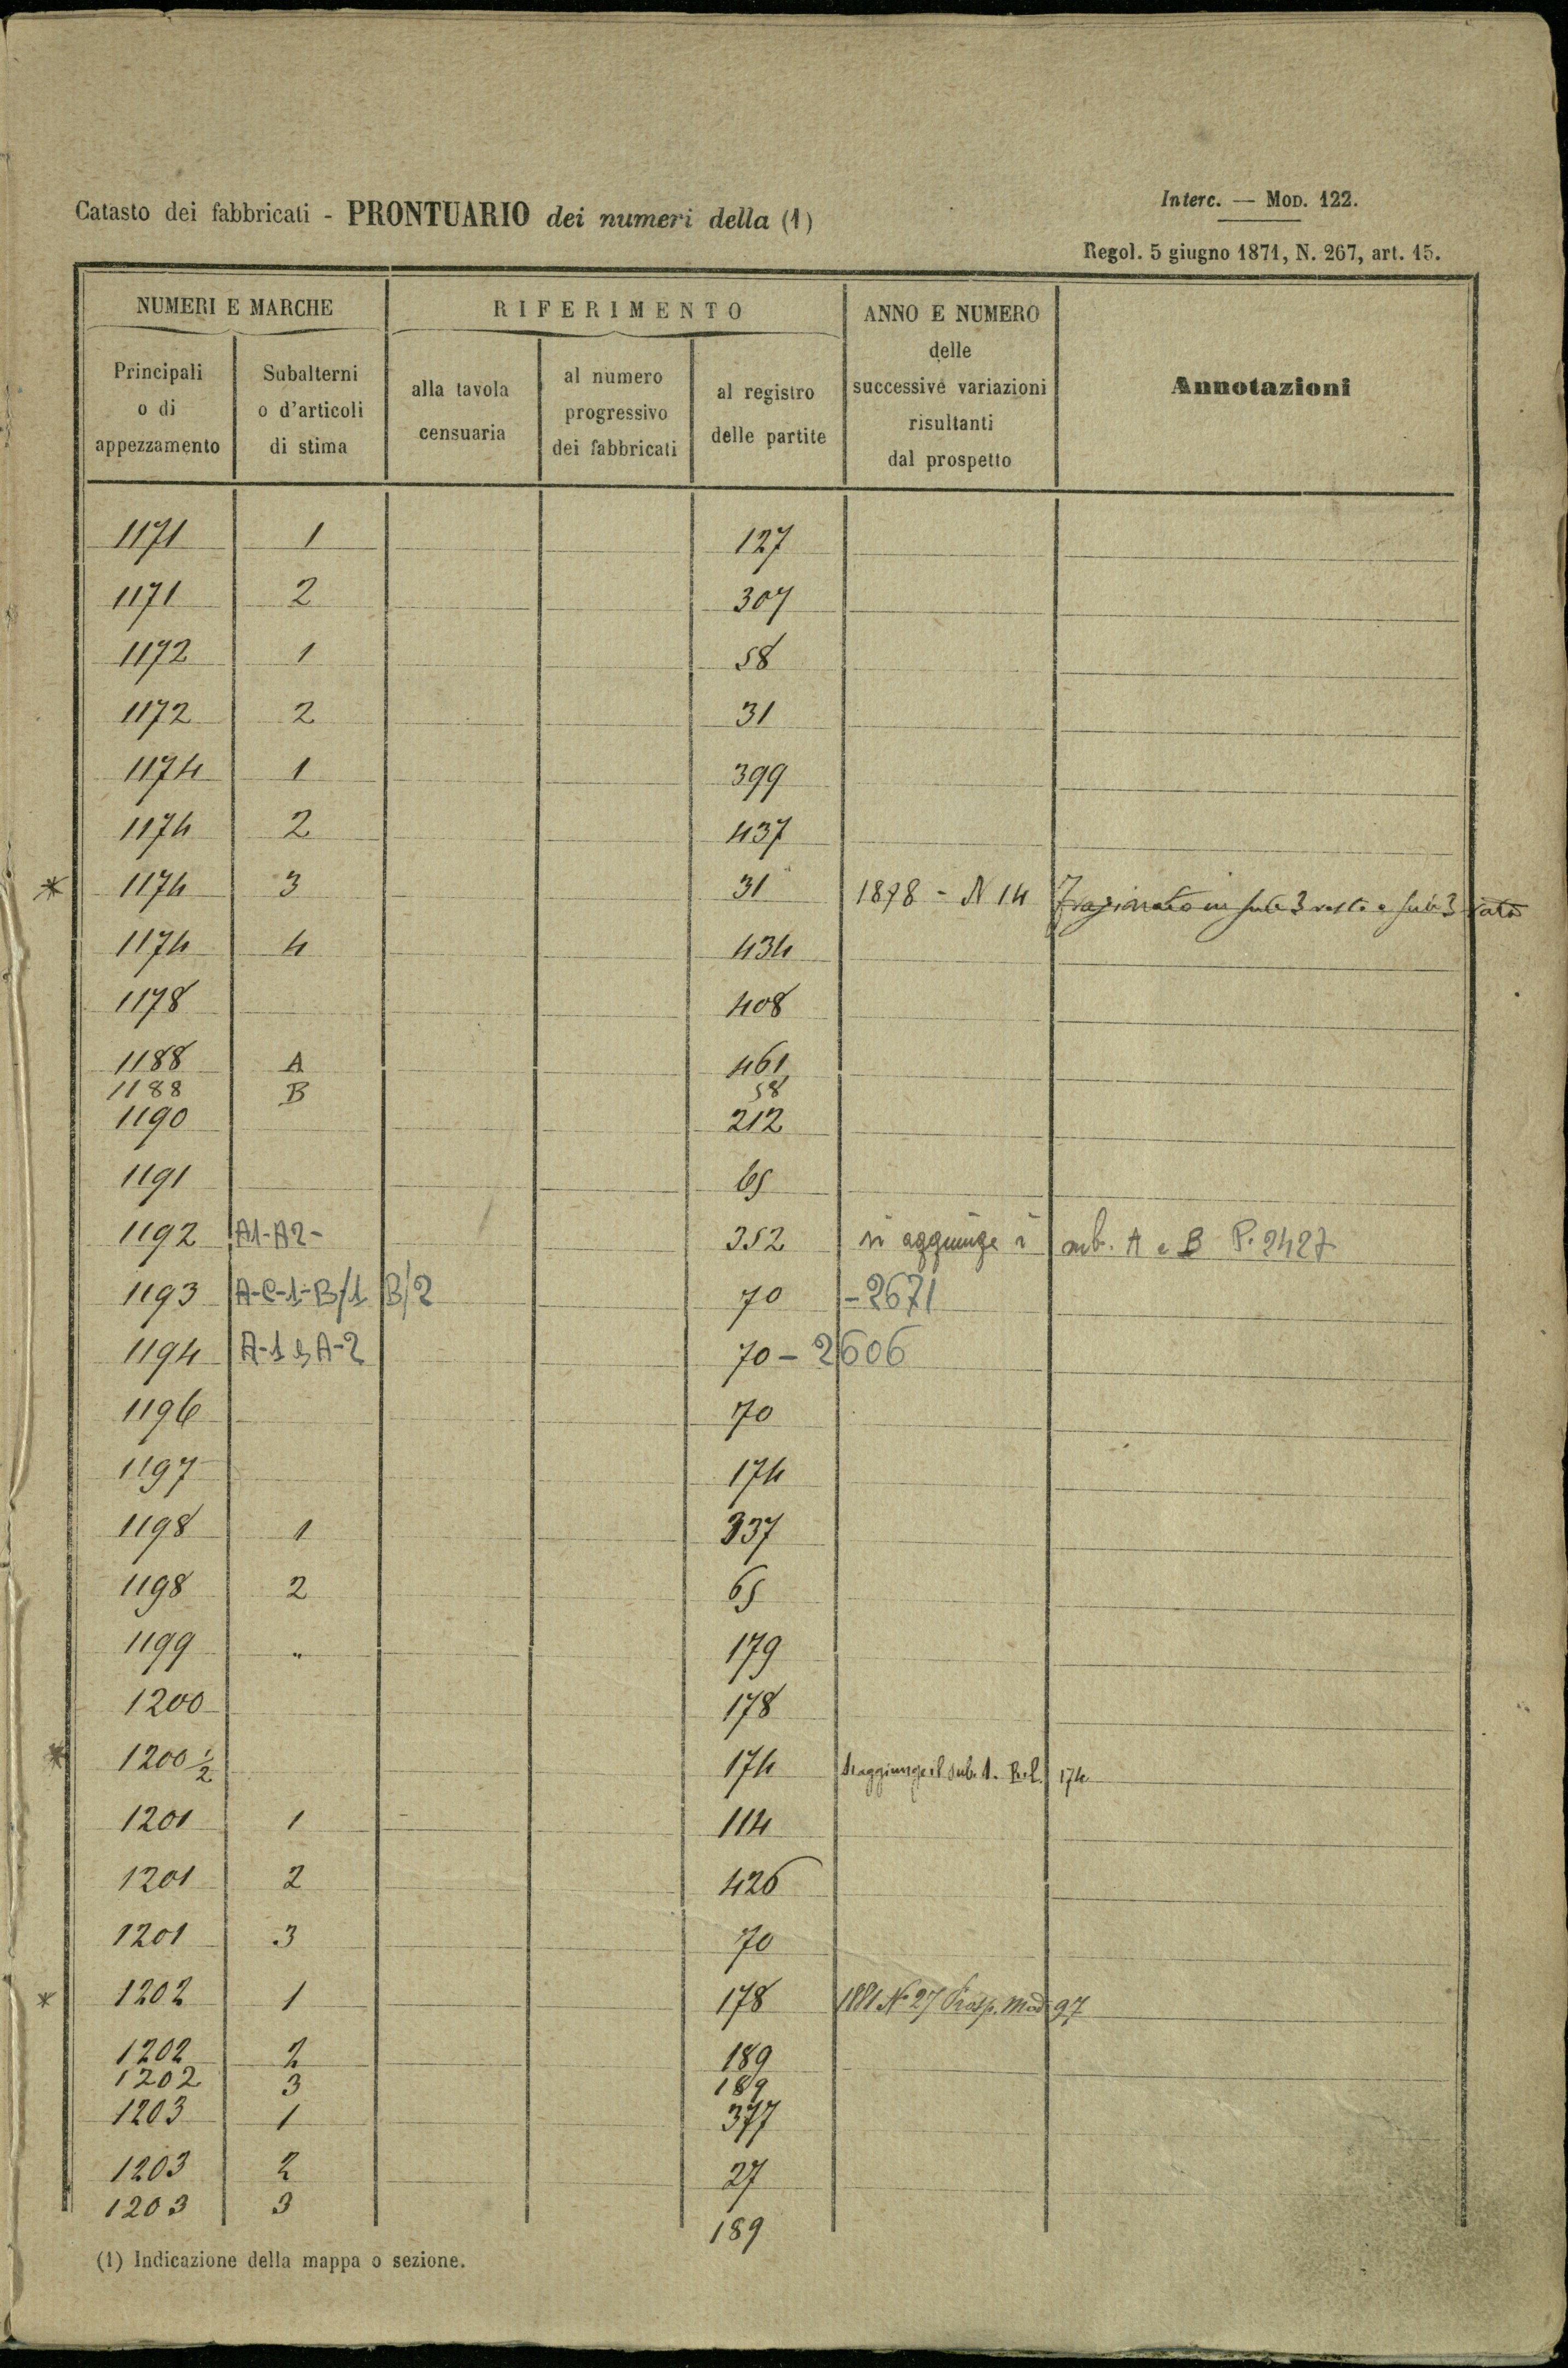 Catasto dei fabbricati - PRONTUARIO dei numeri della (1)
Interc. — Mod. 122.
Regol. 5 giugno 1871, N. 267, art. 15.
NUMERI E MARCHE
RIFERIMENTO
ANNO E NUMERO delle successive variazioni risultanti dal prospetto
Annotazioni
Principali o di appezzamento
Subalterni o d'articoli di stima
alla tavola censuaria
al numero progressivo dei fabbricati
al registro delle partite
1171 1 127
1171 2 307
1172 1 58
1172 2 31
1174 1 399
1174 2 437
* 1174 3 31 1878 - N 14 Frazionato in sub 3 resto e sub 3
1174 4 434
1178 408
1188 A 461
1188 B 58
1190 212
1191 65
1192 A1-A2- 352 si aggiunge i sub. A e B P. 2427
1193 A-C-1-B/1 B/2 70 -2671
1194 A-1 e A-2 70 - 2606
1196 70
1197 174
1198 1 337
1198 2 65
1199 " 179
1200 178
* 1200 1/2 174 Si aggiunge il sub. 1. 174
1201 1 114
1201 2 426
1201 3 70
* 1202 1 178 1881 N° 27 Prosp. Mod 97
1202 2 189
1202 3 189
1203 1 377
1203 2 27
1203 3 189
(1) Indicazione della mappa o sezione.